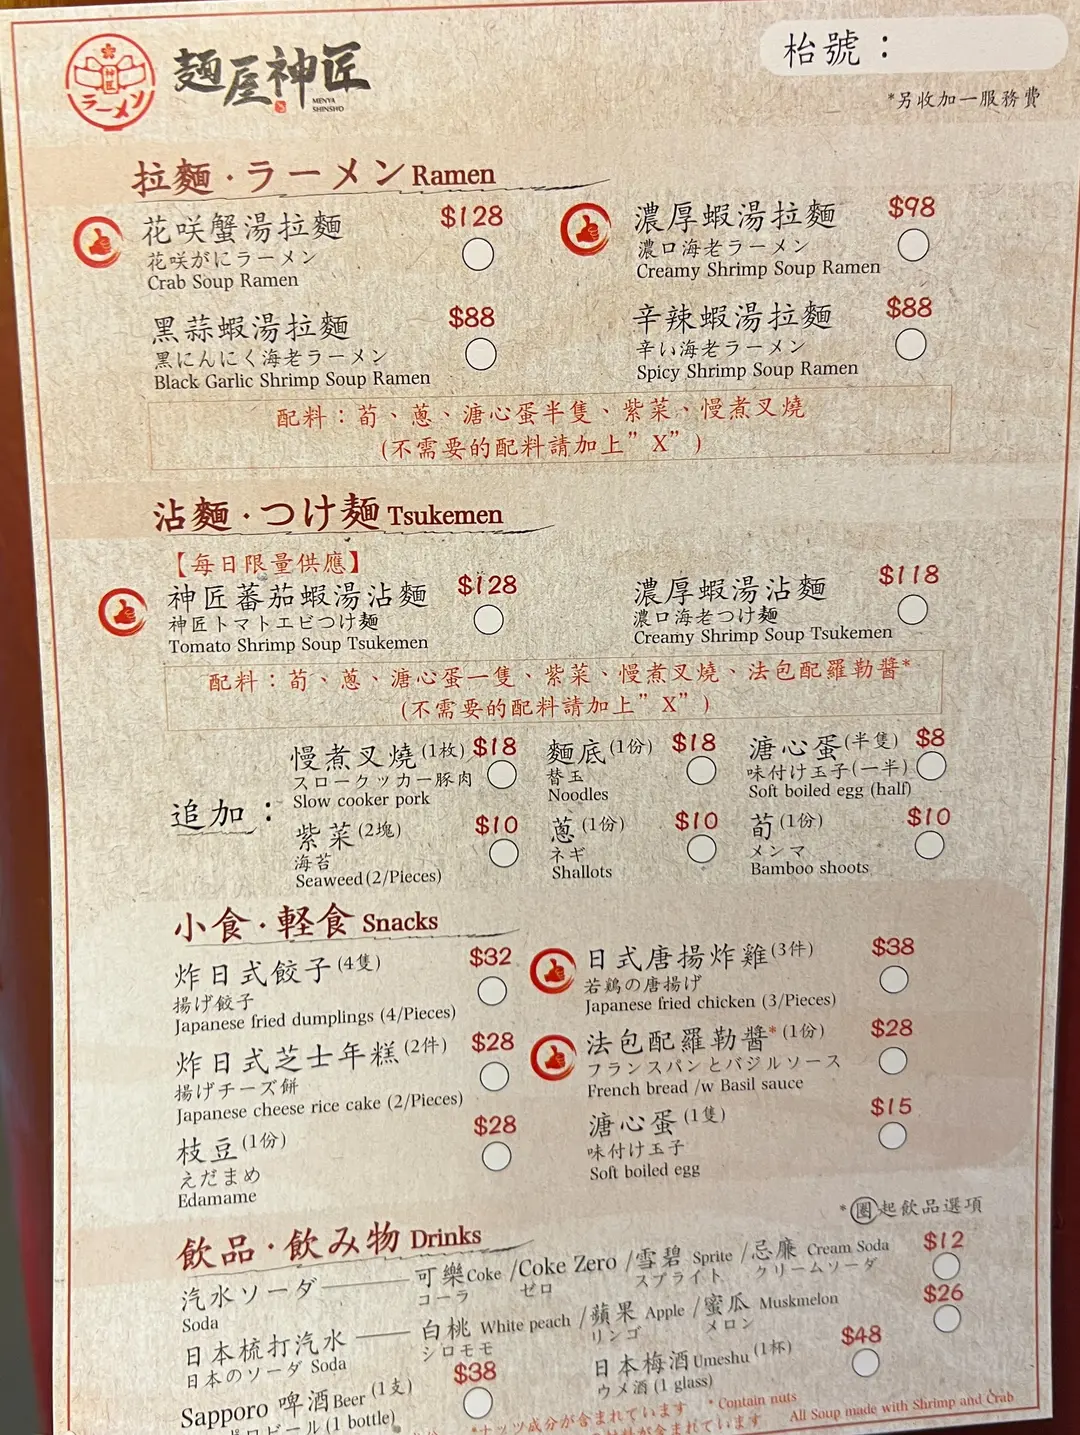 麵屋神匠
MENYA SHINSHO
神匠
ラーメン
枱號：
*另收加一服務費
拉麵·ラーメン Ramen
花咲蟹湯拉麵 $128
花咲がにラーメン
Crab Soup Ramen
濃厚蝦湯拉麵 $98
濃口海老ラーメン
Creamy Shrimp Soup Ramen
黑蒜蝦湯拉麵 $88
黒にんにく海老ラーメン
Black Garlic Shrimp Soup Ramen
辛辣蝦湯拉麵 $88
辛い海老ラーメン
Spicy Shrimp Soup Ramen
配料：荀、蔥、溏心蛋半隻、紫菜、慢煮叉燒
(不需要的配料請加上”X”)
沾麵·つけ麵 Tsukemen
【每日限量供應】
神匠蕃茄蝦湯沾麵 $128
神匠トマトエビつけ麵
Tomato Shrimp Soup Tsukemen
濃厚蝦湯沾麵 $118
濃口海老つけ麵
Creamy Shrimp Soup Tsukemen
配料：荀、蔥、溏心蛋一隻、紫菜、慢煮叉燒、法包配羅勒醬*
(不需要的配料請加上”X”)
追加：
慢煮叉燒(1枚) $18
スロークッカー豚肉
Slow cooker pork
麵底(1份) $18
替玉
Noodles
溏心蛋(半隻) $8
味付け玉子(一半)
Soft boiled egg (half)
紫菜(2塊) $10
海苔
Seaweed(2/Pieces)
蔥(1份) $10
ネギ
Shallots
荀(1份) $10
メンマ
Bamboo shoots
小食·軽食 Snacks
炸日式餃子(4隻) $32
揚げ餃子
Japanese fried dumplings (4/Pieces)
日式唐揚炸雞(3件) $38
若鶏の唐揚げ
Japanese fried chicken (3/Pieces)
炸日式芝士年糕(2件) $28
揚げチーズ餅
Japanese cheese rice cake (2/Pieces)
法包配羅勒醬*(1份) $28
フランスパンとバジルソース
French bread /w Basil sauce
枝豆(1份) $28
えだまめ
Edamame
溏心蛋(1隻) $15
味付け玉子
Soft boiled egg
*圈起飲品選項
飲品·飲み物 Drinks
汽水ソーダ 可樂Coke /Coke Zero /雪碧 Sprite /忌廉 Cream Soda $12
Soda コーラ ゼロ スプライト クリームソーダ
日本梳打汽水 白桃 White peach /蘋果 Apple /蜜瓜 Muskmelon $26
日本のソーダ Soda シロモモ リンゴ メロン
Sapporo 啤酒Beer (1支) $38
ビール(1 bottle)
日本梅酒Umeshu (1杯) $48
ウメ酒 (1 glass)
*ナッツ成分が含まれています *Contain nuts
含まれています All Soup made with Shrimp and Crab